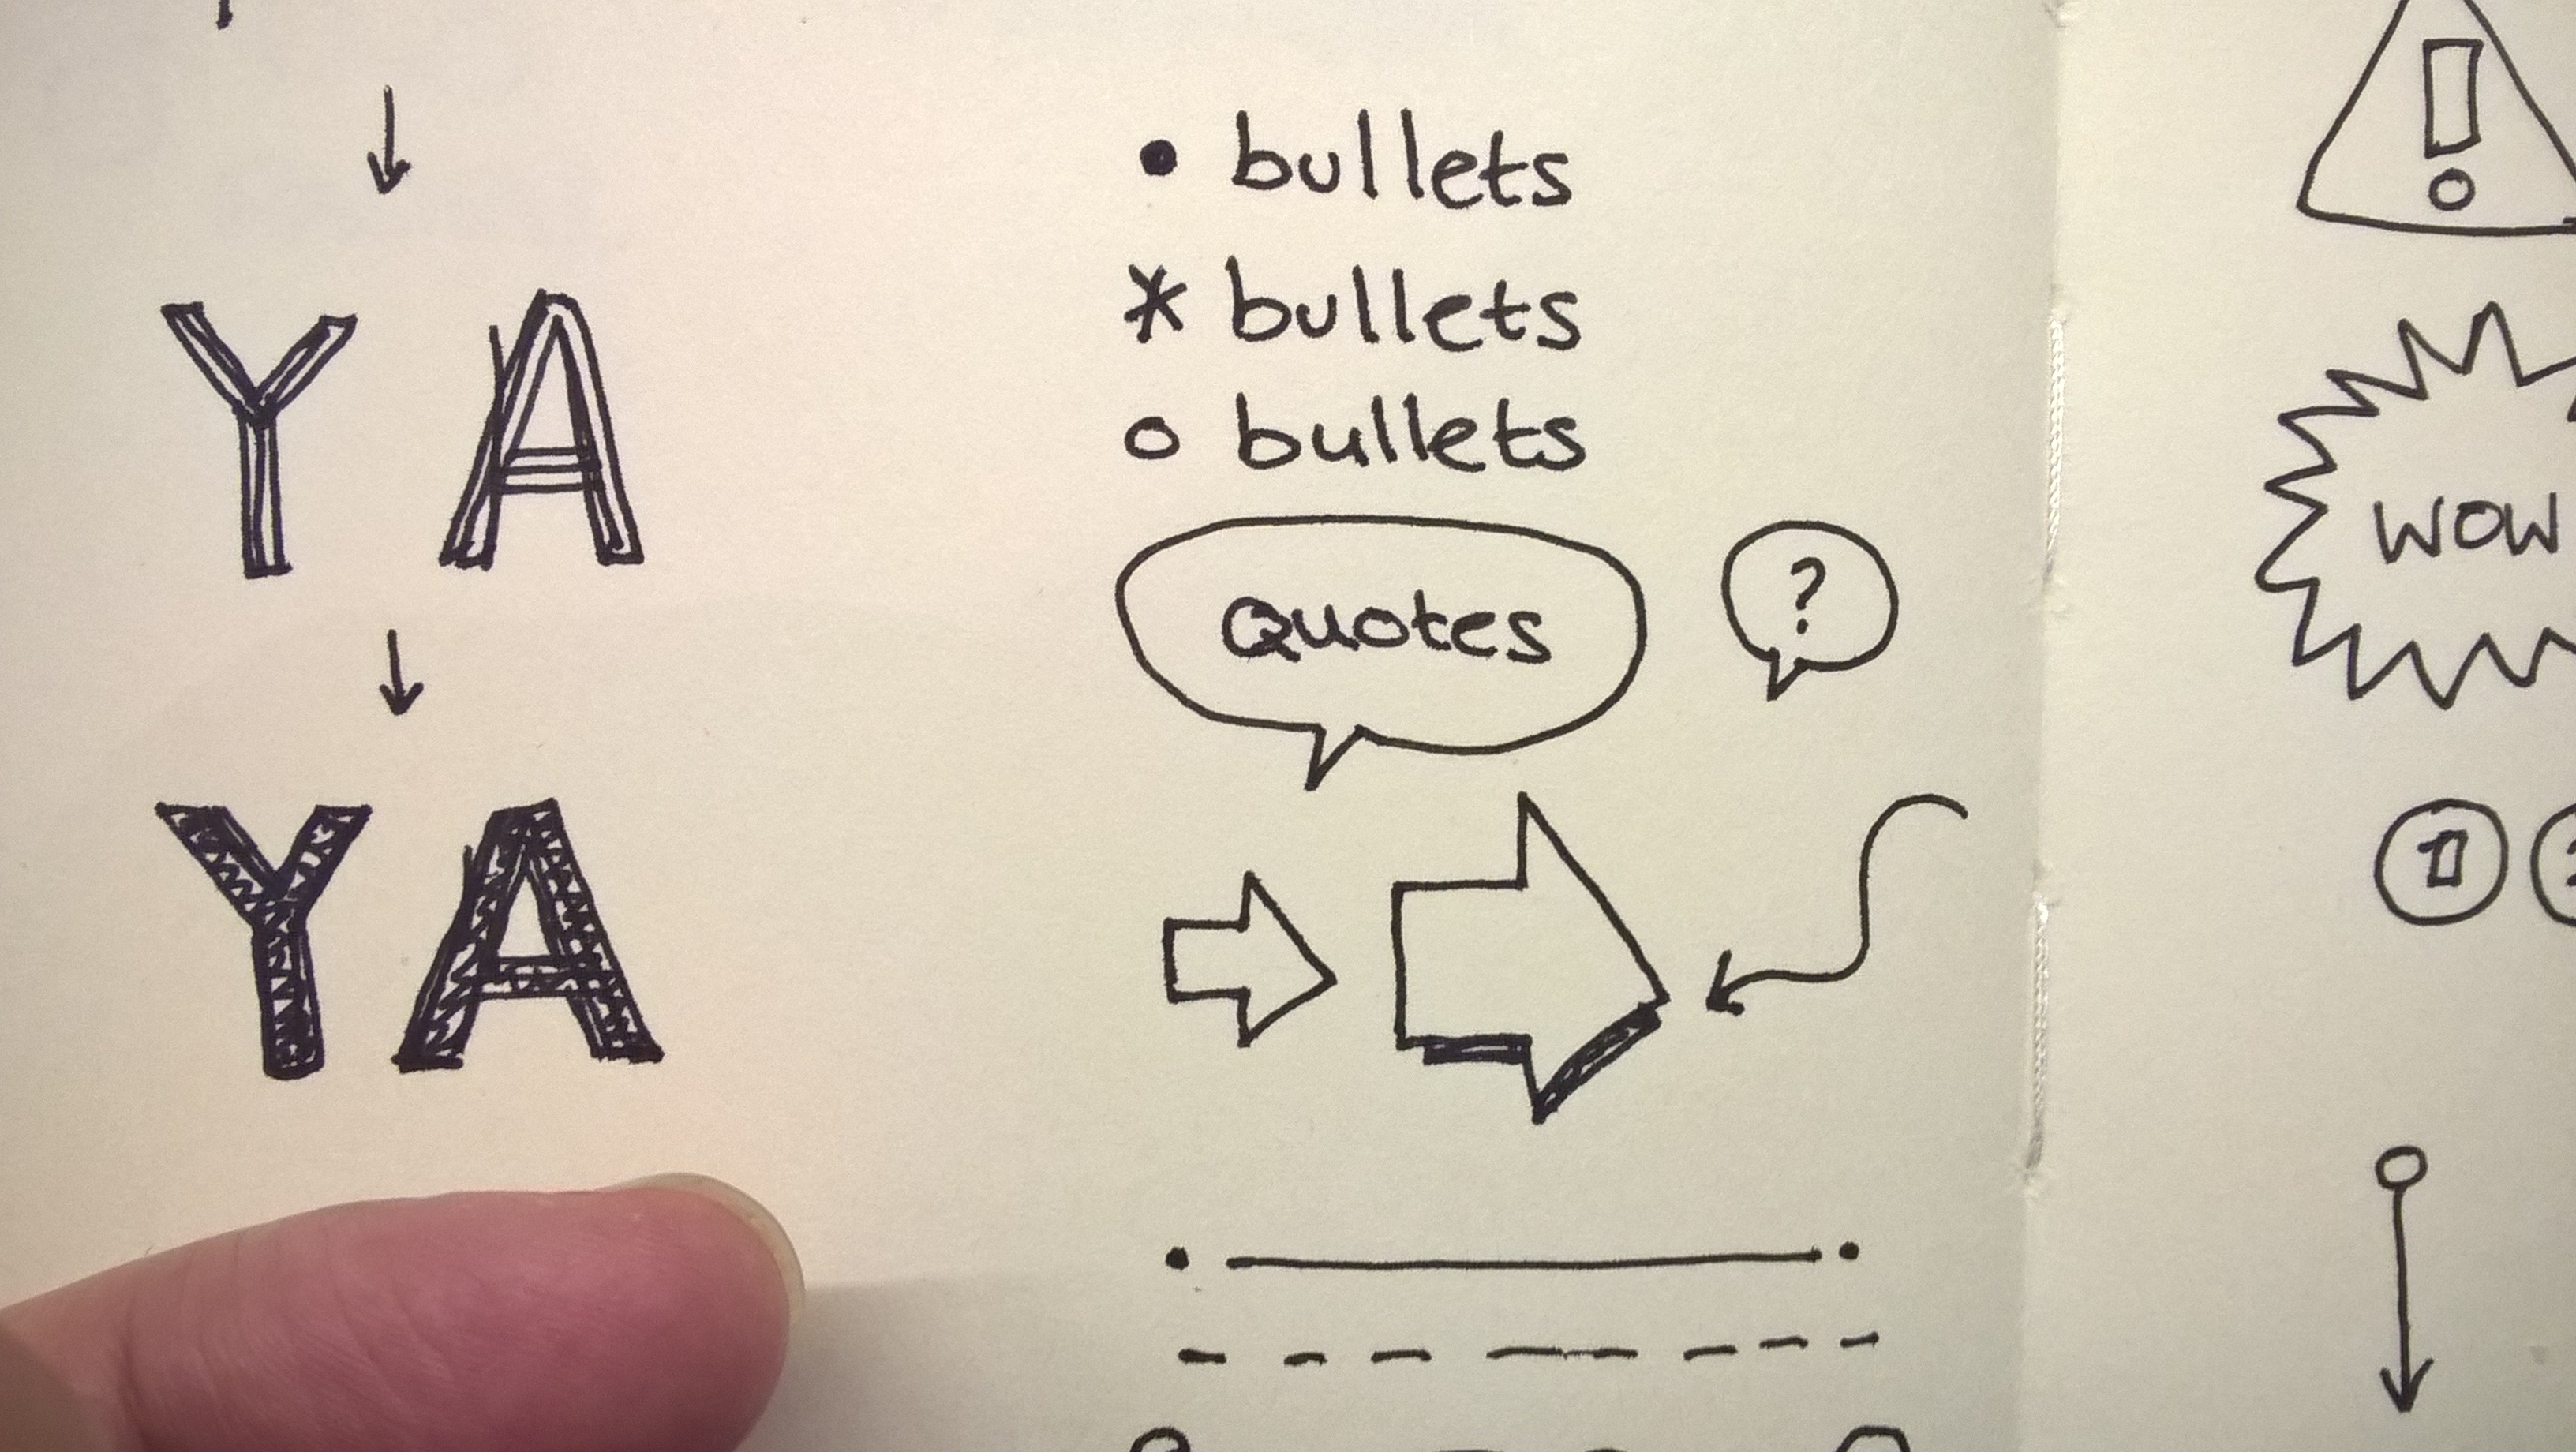 Y A
YA
• bullets
* bullets
o bullets
Quotes
?
!
WOW
1